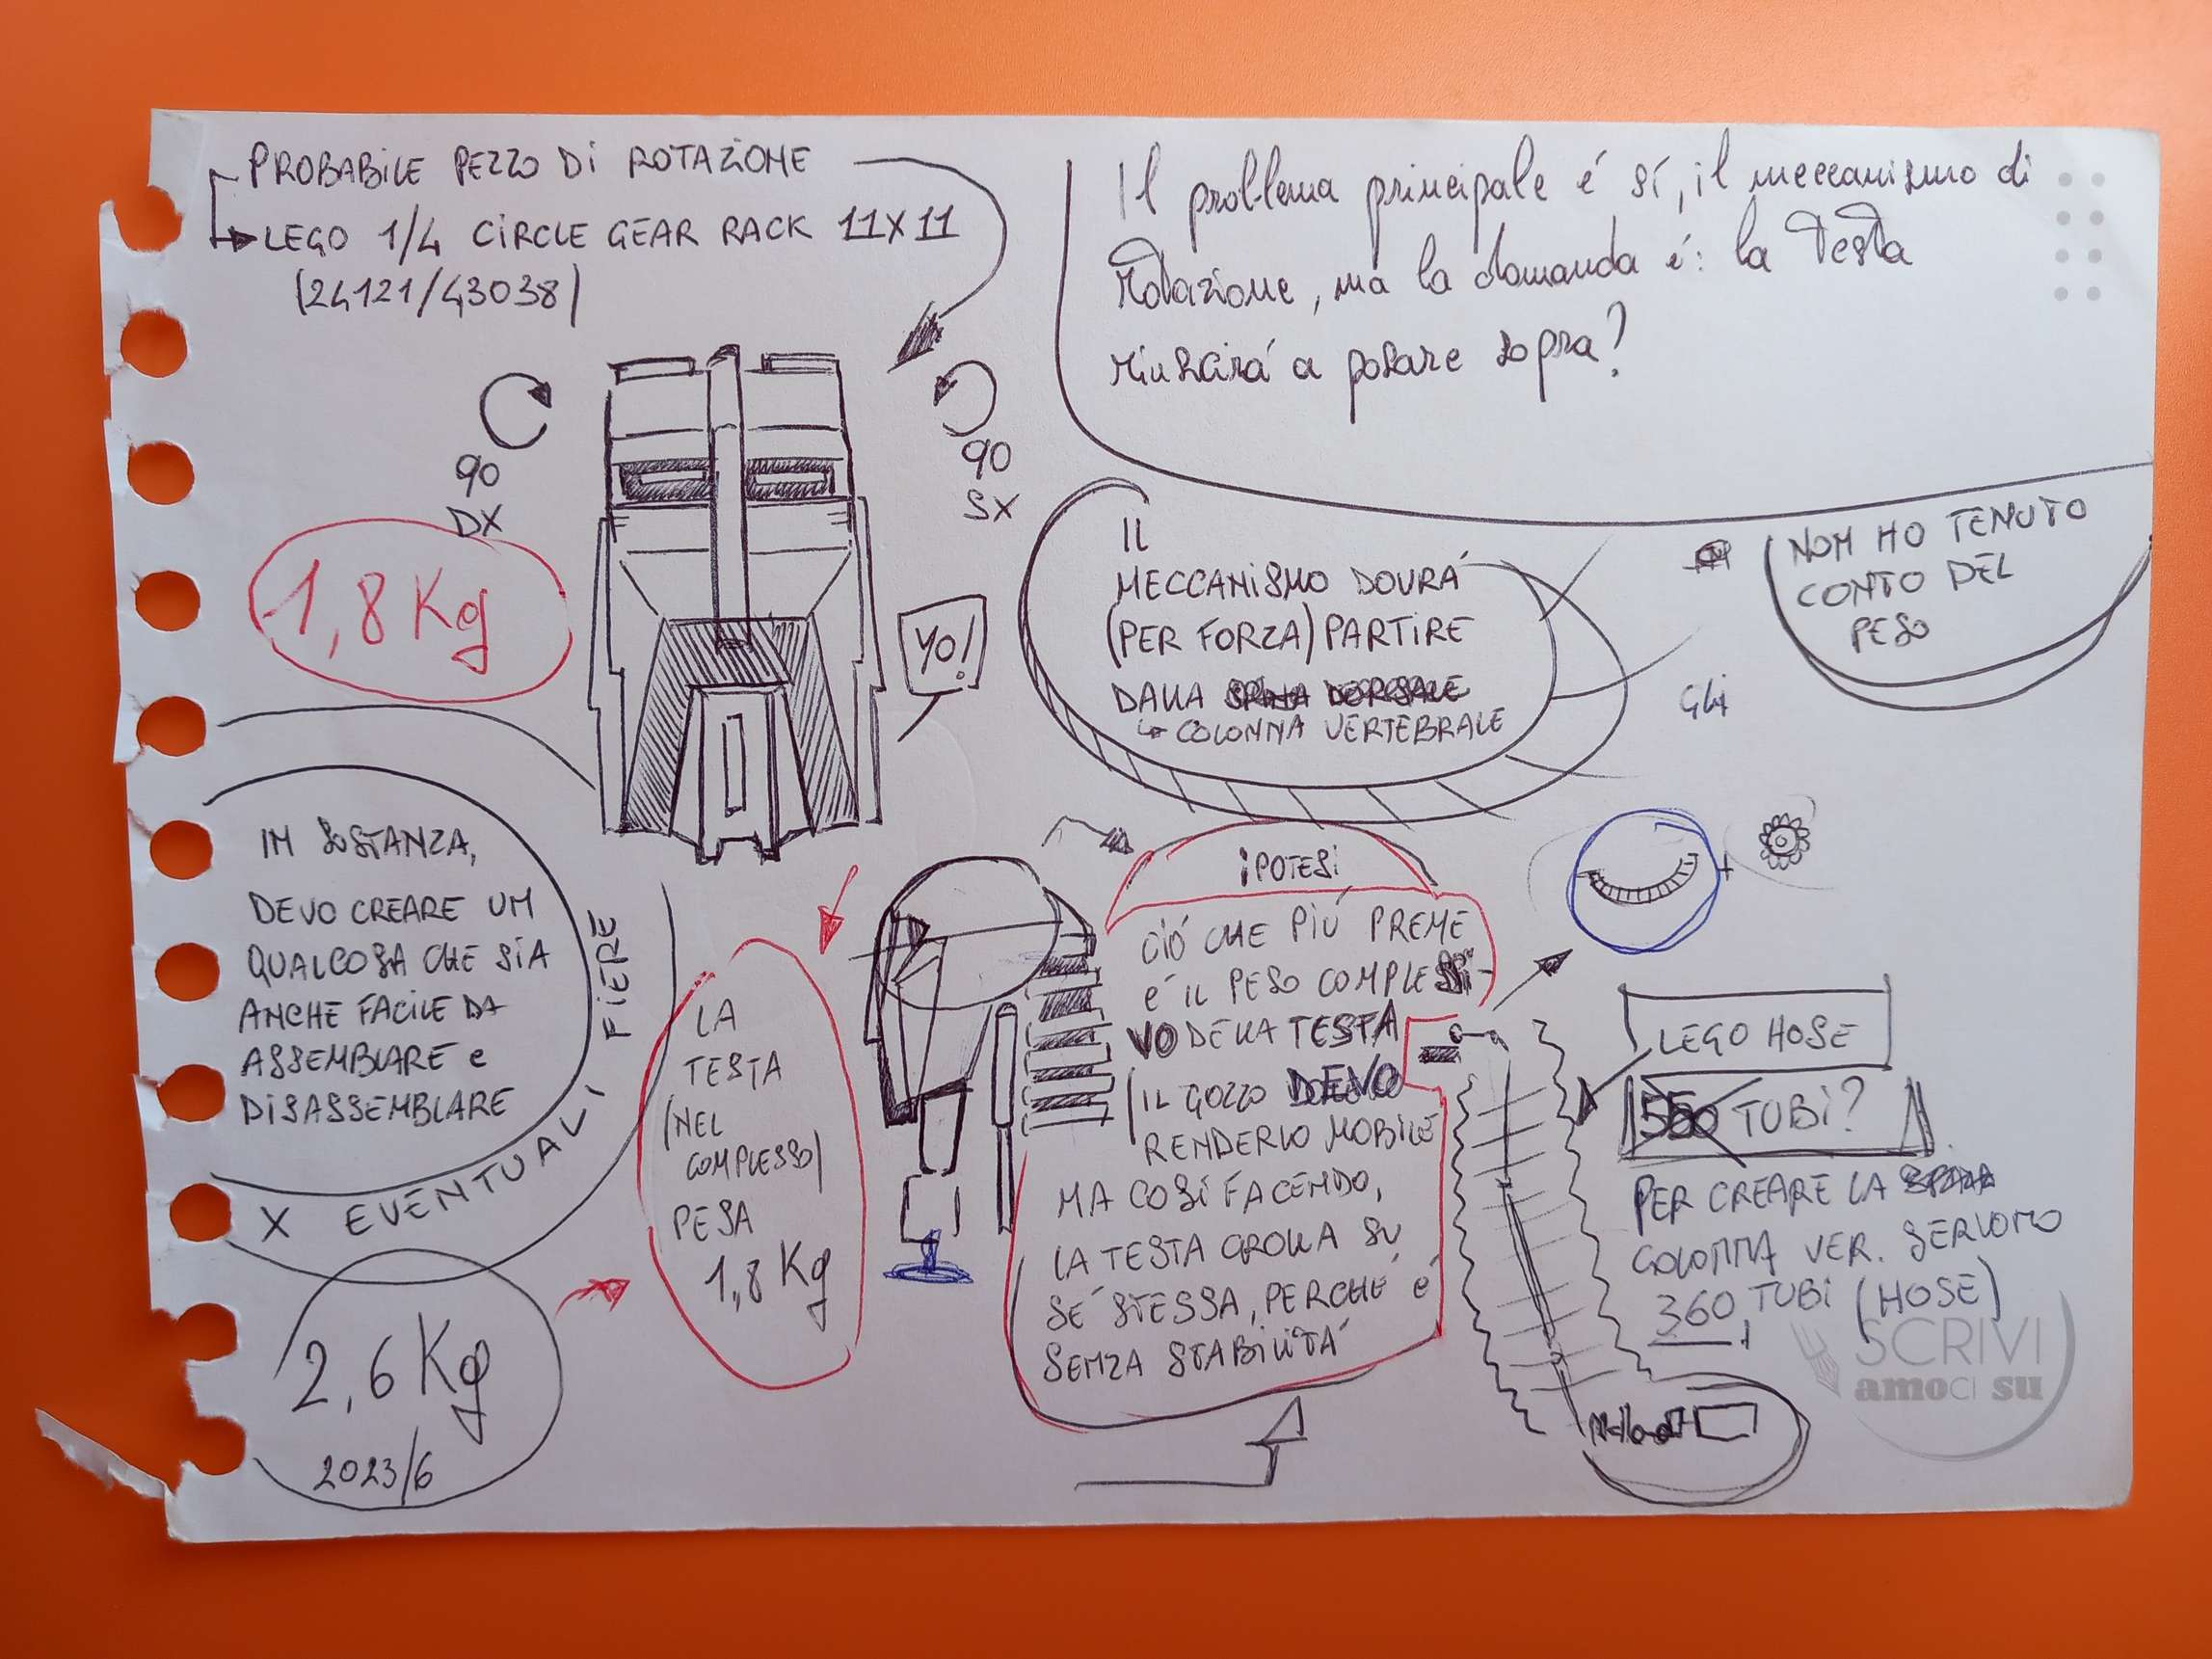 PROBABILE PEZZO DI ROTAZIONE
LEGO 1/4 CIRCLE GEAR RACK 11X11
(24121/43038)
Il problema principale é sí, il meccanismo di
rotazione, ma la domanda é: la testa
riuscirá a posare sopra?
90
DX
90
SX
1,8 Kg
YO!
IL
MECCANISMO DOVRÁ
(PER FORZA) PARTIRE
DALLA SPINA DORSALE
COLONNA VERTEBRALE
NON HO TENUTO
CONTO DEL
PESO
Gli
IN SOSTANZA,
DEVO CREARE UN
QUALCOSA CHE SIA
ANCHE FACILE DA
ASSEMBLARE e
DISASSEMBLARE
X EVENTUALI FIERE
2,6 Kg
2023/6
LA
TESTA
(NEL
COMPLESSO)
PESA
1,8 Kg
IPOTESI
CIÓ CHE PIÚ PREME
É IL PESO COMPLESSI-
VO DELLA TESTA
IL GOZZO DEVO
RENDERLO MOBILE
MA COSÍ FACENDO,
LA TESTA CROLLA SU
SÉ STESSA, PERCHÉ É
SENZA STABILITÁ
+
LEGO HOSE
550 TUBI?
PER CREARE LA SPINA
COLONNA VER. SERVONO
360 TUBI (HOSE)
SCRIVI
amoci su